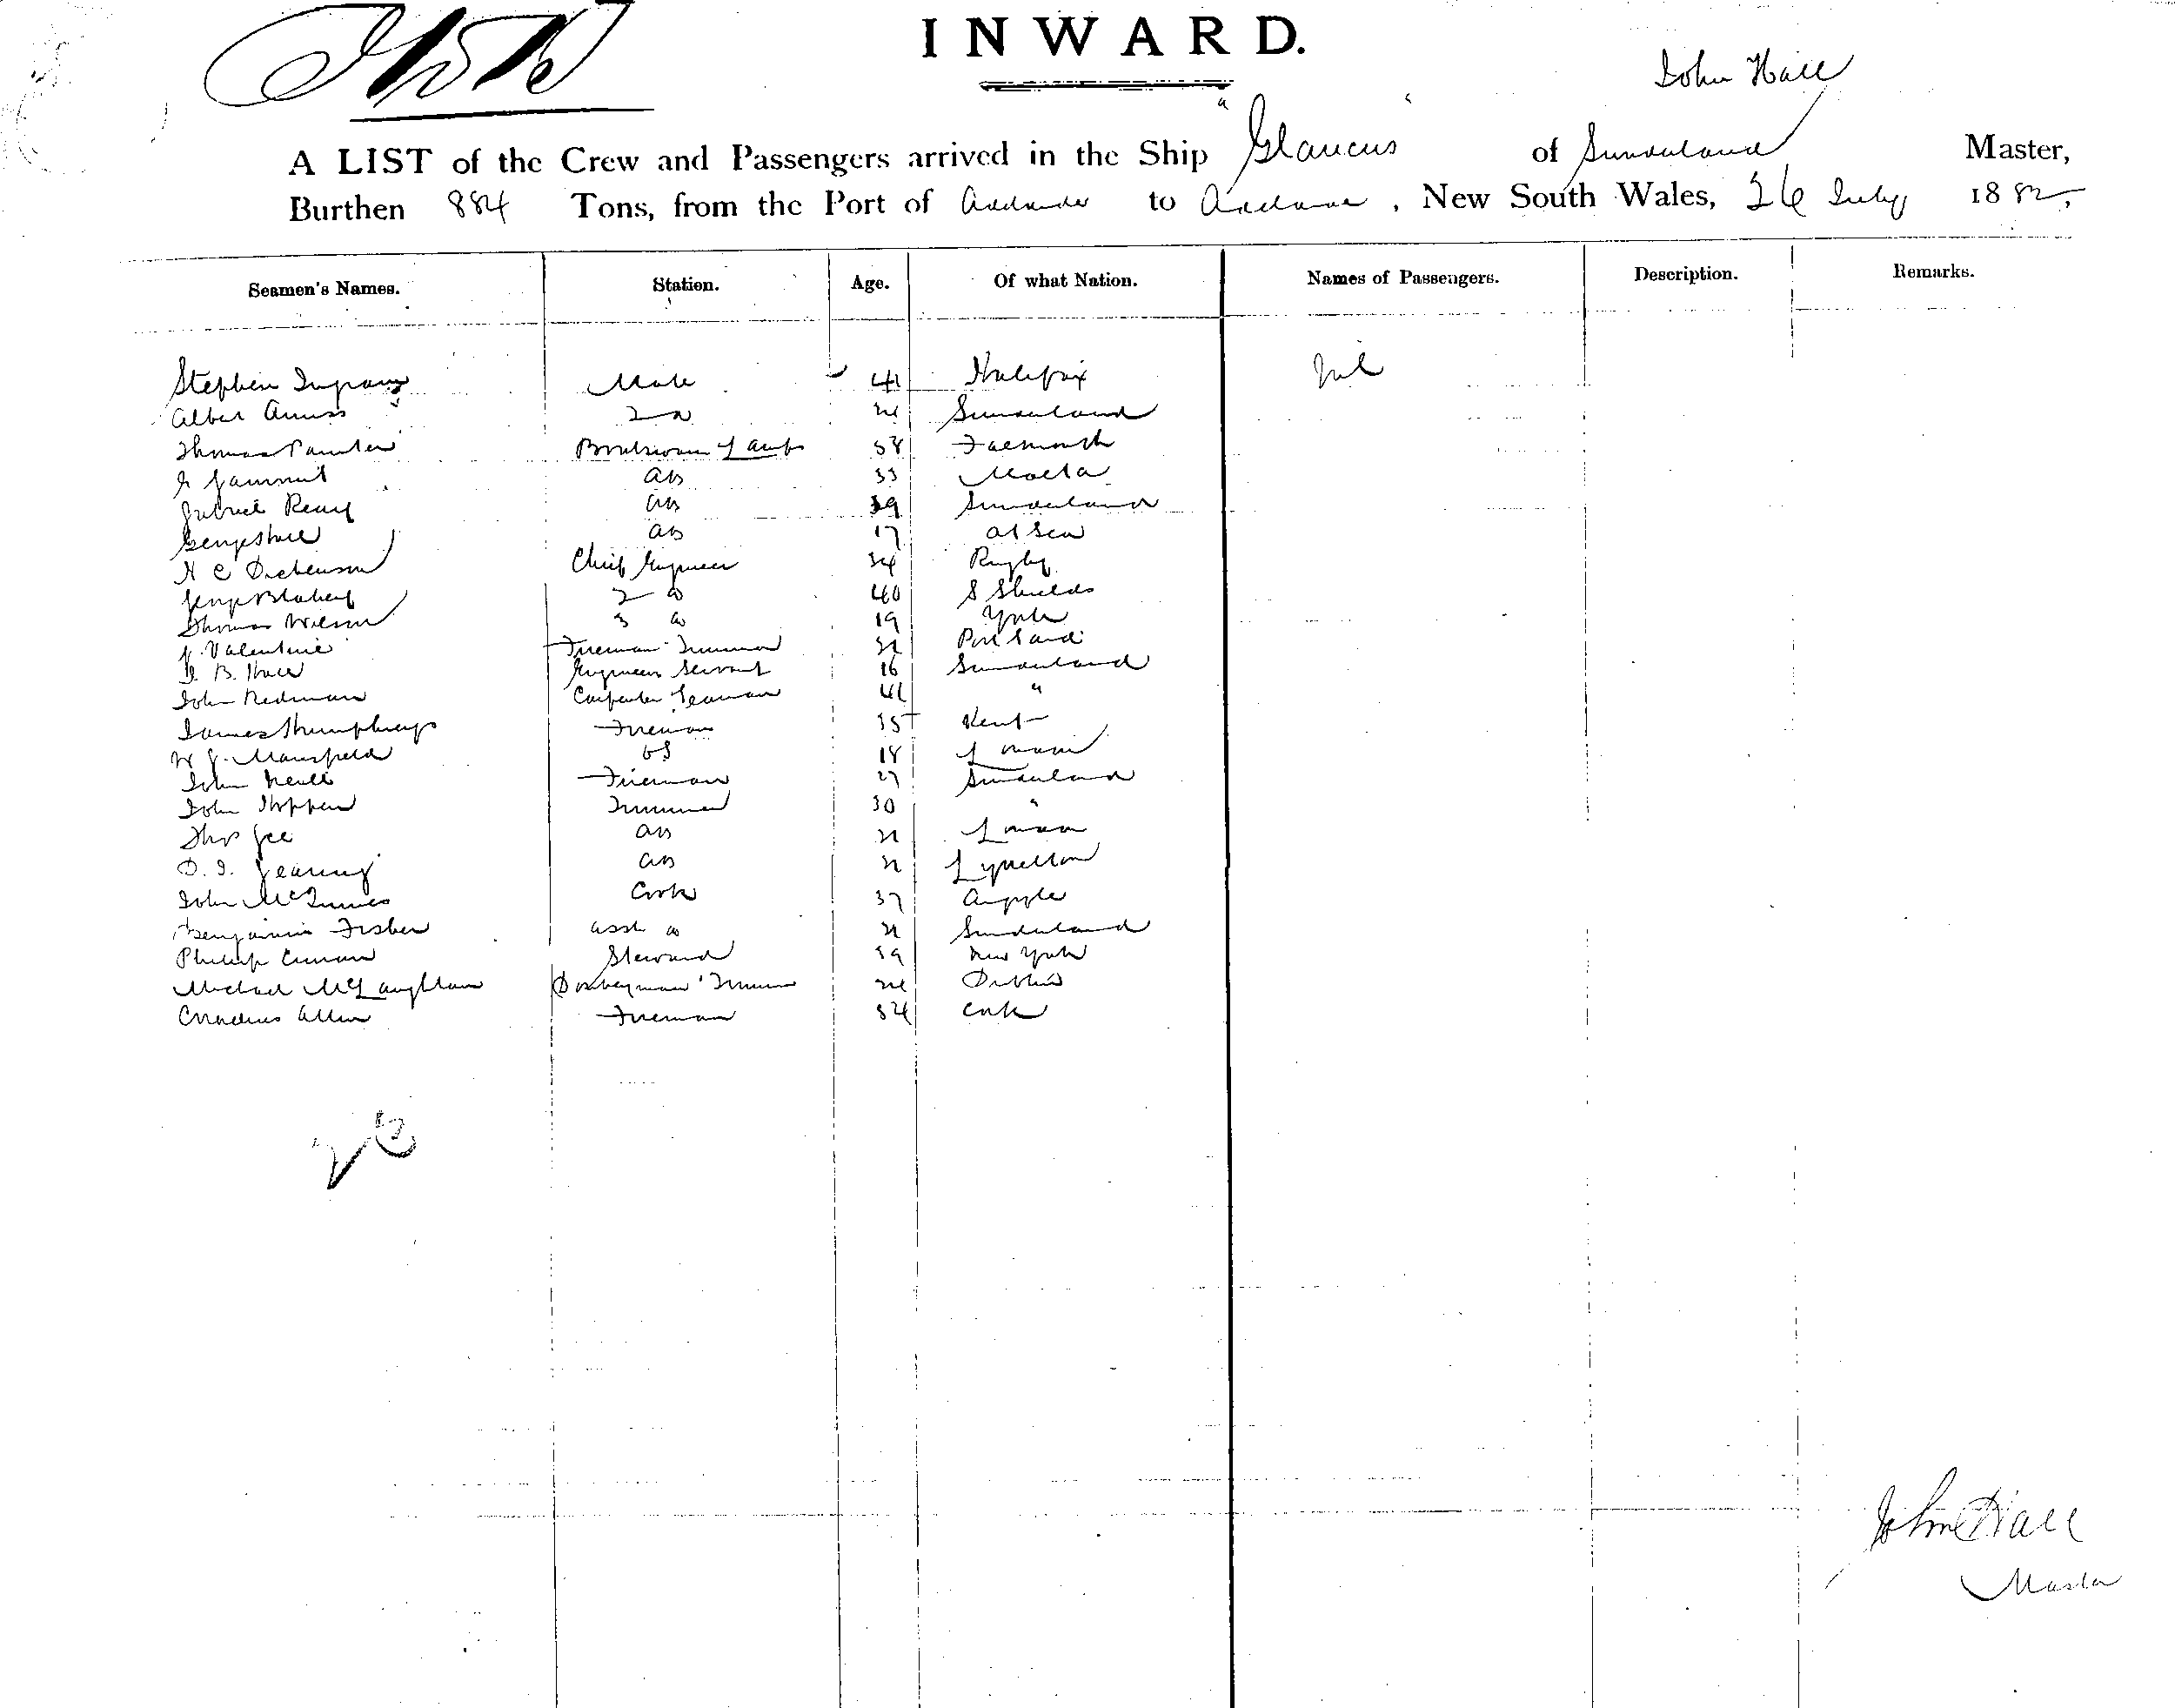 INWARD.
John Hall
A LIST of the Crew and Passengers arrived in the Ship "Glaucus" of Sunderland Master,
Burthen 884 Tons, from the Port of Adelaide to , New South Wales, 26 July 1882,
Seamen's Names. Station. Age. Of what Nation. Names of Passengers. Description. Remarks.
Stephen Ingram Mate 41 Halifax Nil
Albert 2 Sunderland
Thomas Painter Boatswain & Lamps 58 Falmouth
AB 33 Malta
Gabriel AB 39 Sunderland
George Hall AB 17 at Sea
H C Dickenson Chief Engineer 34 Rugby
George Blakey 2 do 40 S Shields
Thomas Wilson 3 do 19 York
Valentine Fireman Trimmer Portland
B. Hall Engineers Servant 16 Sunderland
John Redman Carpenter Seaman 41 "
James Humphreys Fireman 35 Kent
W J. Mansfield OS 18 London
John Neill Fireman 27 Sunderland
John Hoppen Trimmer 30 "
Thos Gee AB London
D. J. Gearing AB
John McInnes Cook 37 Argyle
Benjamin Fisher Asst do Sunderland
Philip Steward 39 New York
Michael McLaughlan Donkeyman Trimmer Dublin
Cornelius Allen Fireman 34 Cork
23
John Hall
Master